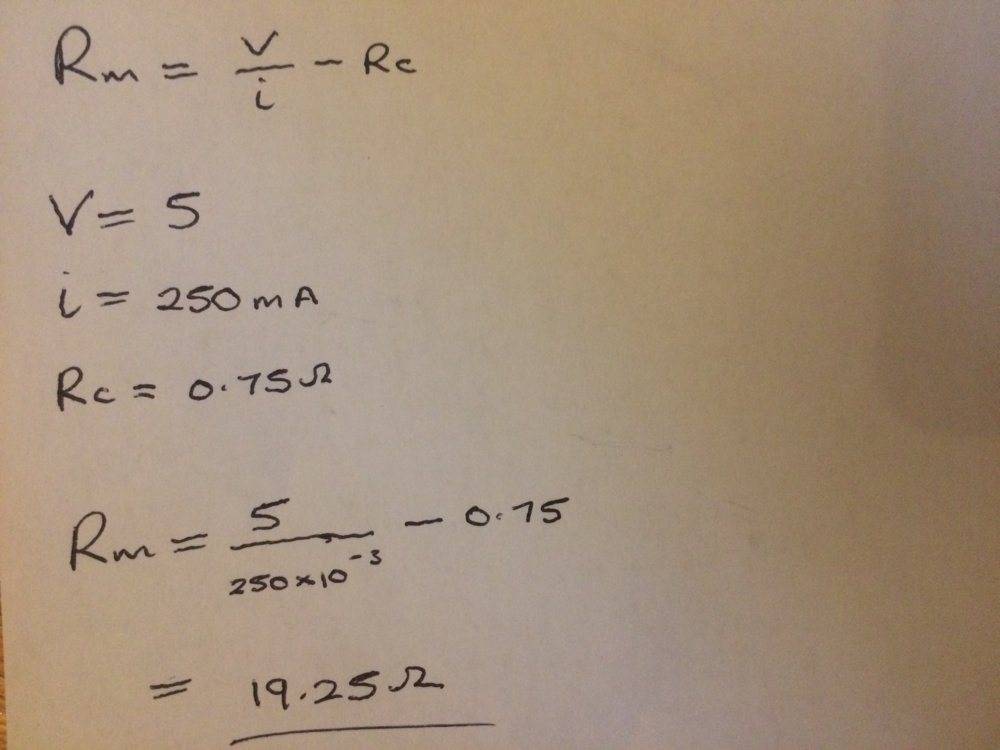 Rm = V/i - Rc
V = 5
i = 250mA
Rc = 0.75Ω
Rm = 5/250×10⁻³ - 0.75
= 19.25Ω